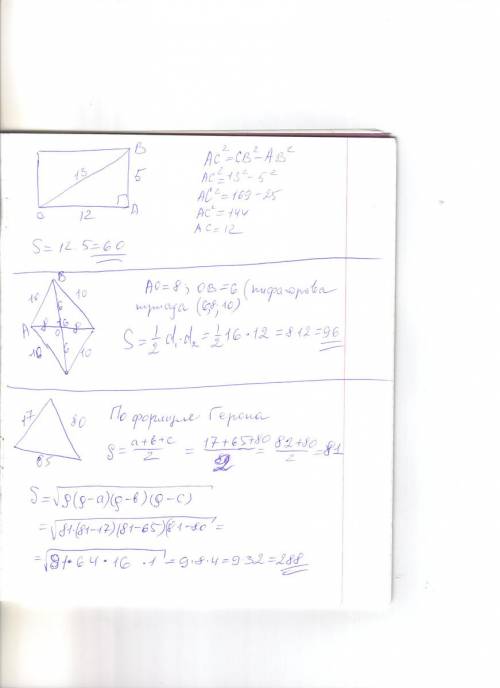 B
13
5
O
12
A
AC²=CB²-AB²
AC²=13²-5²
AC²=169-25
AC²=144
AC=12
S=12·5=60
B
10
10
6
A
8
16
8
O
10
6
10
AO=8; OB=6 (пифагорова
(6,8,10)
S=1/2 d₁·d₂=1/2 16·12=8·12=96
17
80
65
По формуле Герона
p=a+b+c/2 = 17+65+80/2 = 82+80/2 =81
S=√p(p-a)(p-b)(p-c)
=√81·(81-17)(81-65)(81-80) =
=√81·64·16·1=9·8·4=9·32=288